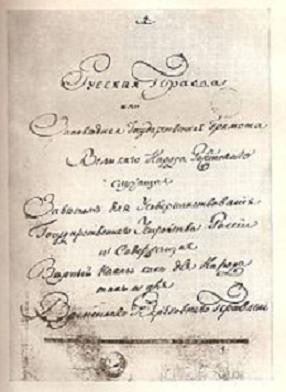 Русская Правда
или
Заповедная Государственная Грамота
Великаго Народа Россійскаго
служащая
Заветомъ для Усовершенствованія
Государственнаго Устройства Россіи
и Содержащая
Верный Наказъ какъ для Народа
такъ и для
Временнаго Верховнаго Правленія